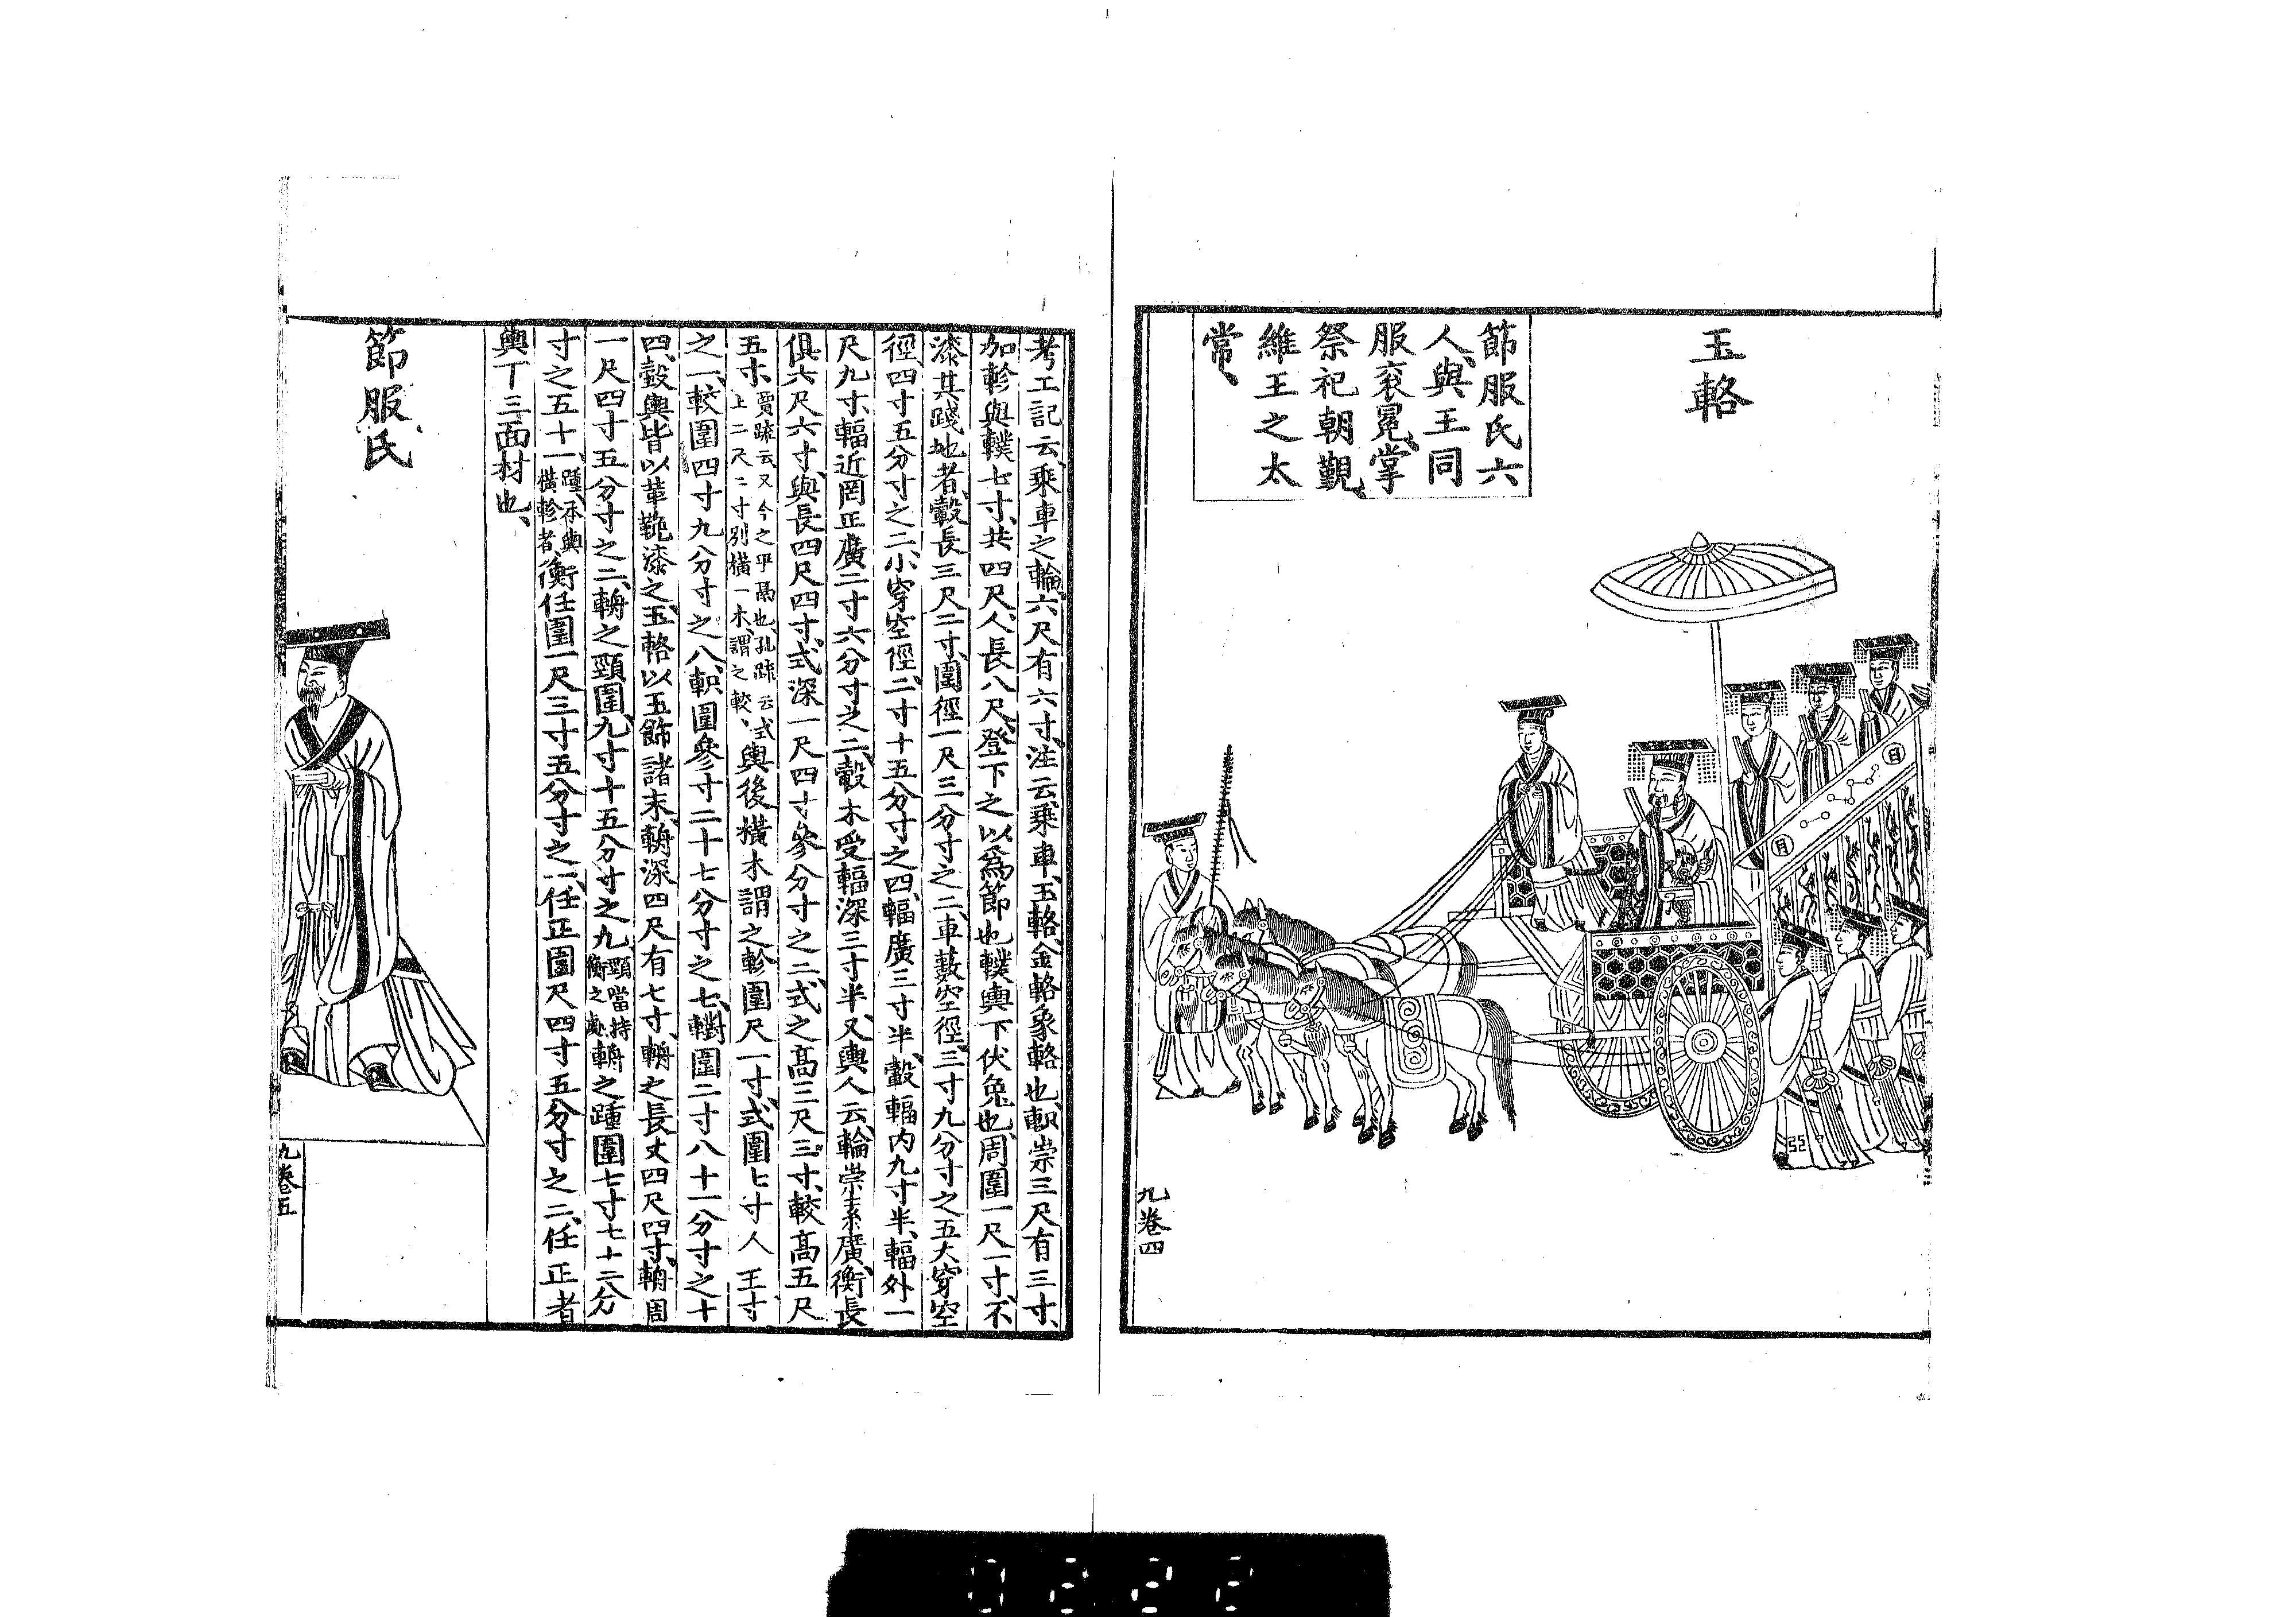 玉輅
節服氏六
人、與王同
服衮冕、掌
祭祀朝覲、
維王之太
常、
日
月
九卷四
考工記云、乘車之輪、六尺有六寸、注云、乘車、玉輅、金輅、象輅也、軹崇三尺有三寸、
加軫與轐七寸、共四尺、人長八尺、登下之以爲節也、轐輿下伏兔也、周圍一尺一寸、不
漆其踐地者、轂長三尺二寸、圍徑一尺三分寸之二、車藪空徑、三寸九分寸之五、大穿空
徑、四寸五分寸之二、小穿空徑、二寸十五分寸之四、輻廣三寸半、轂輻内九寸半、輻外一
尺九寸、輻近罔正廣二寸六分寸之二、轂木受輻深三寸半、又輿人云、輪崇素廣、衡長
俱六尺六寸、輿長四尺四寸、式深一尺四寸參分寸之二、式之高三尺三寸、較高五尺
五寸、賈疏云又今之平鬲也、孔疏云式上二尺二寸別橫一木、謂之較、輿後橫木謂之軫圍尺一寸、式圍七寸人王寸
之一、較圍四寸九分寸之八、軹圍參寸二十七分寸之七、轛圍二寸八十一分寸之十
四、轂輿皆以革鞔漆之、玉輅以玉飾諸末、輈深四尺有七寸、輈之長丈四尺四寸、輈周
一尺四寸五分寸之二、輈之頸圍、九寸十五分寸之九、頸當持衡之處、輈之踵圍七寸七十二分
寸之五十一、踵、承輿橫軫者、衡任圍一尺三寸五分寸之一、任正圍尺四寸五分寸之二、任正者
輿下三面材也、
節服氏
九卷五
0222